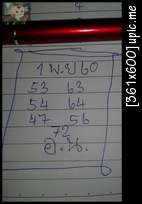 4
1 พ.ย 60
53 63
54 64
47 56
72
อ.น.
[361x600] upic.me